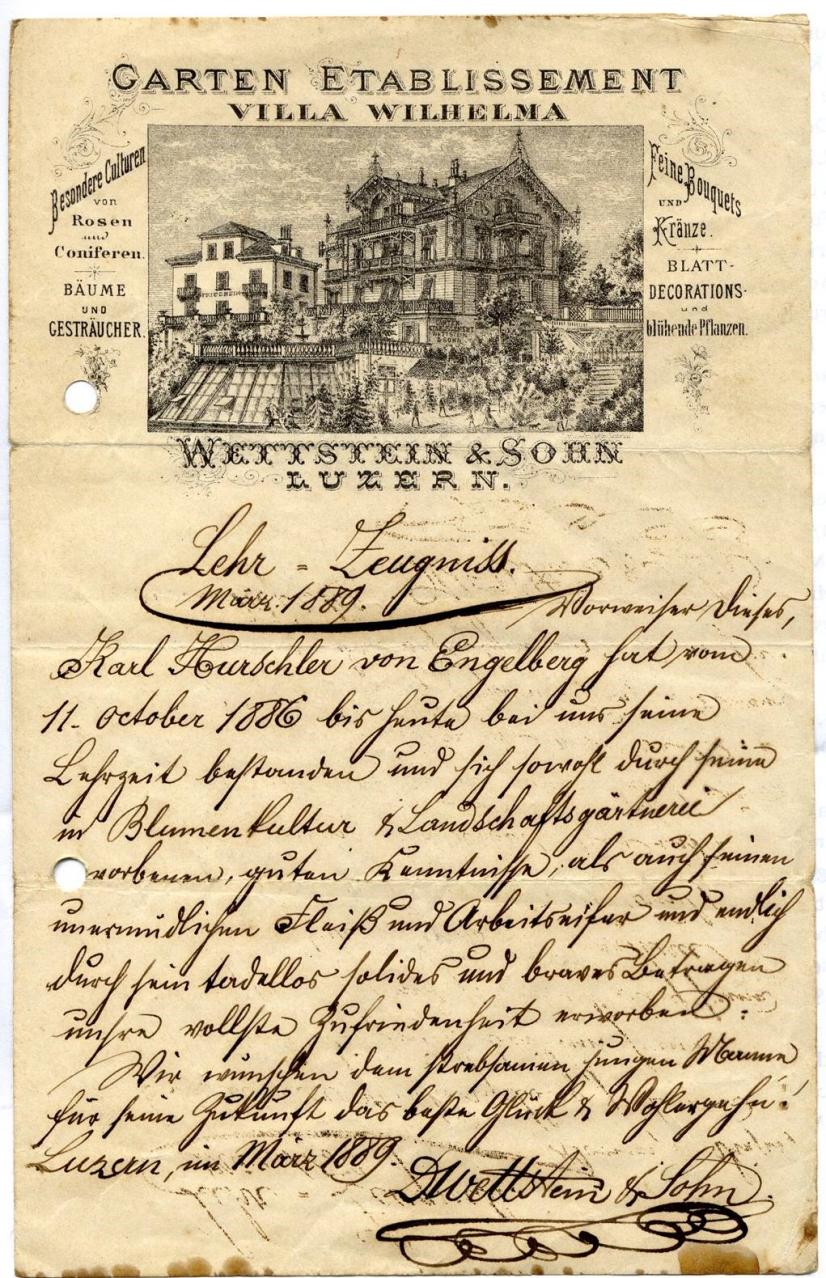 GARTEN ETABLISSEMENT
VILLA WILHELMA
Besondere Culturen
von
Rosen
und
Coniferen.
BÄUME
UND
GESTRÄUCHER.
Feine Bouquets
UND
Kränze.
BLATT-
DECORATIONS-
und
blühende Pflanzen.
WETTSTEIN & SOHN
LUZERN.
Lehr = Zeugniss.
März. 1889.
Vorweiser dieses,
Karl Hurschler von Engelberg hat vom
11. October 1886 bis heute bei uns seine
Lehrzeit bestanden und sich sowohl durch seine
in Blumenkultur & Landschaftsgärtnerei
erworbenen, guten Kenntnisse, als auch seinen
unermüdlichen Fleiß und Arbeitseifer und endlich
durch sein tadellos solides und braves Betragen
unsre vollste Zufriedenheit erworben.
Wir wünschen dem strebsamen jungen Manne
für seine Zukunft das beste Glück & Wohlergehn!
Luzern, im März 1889.
D Wettstein & Sohn